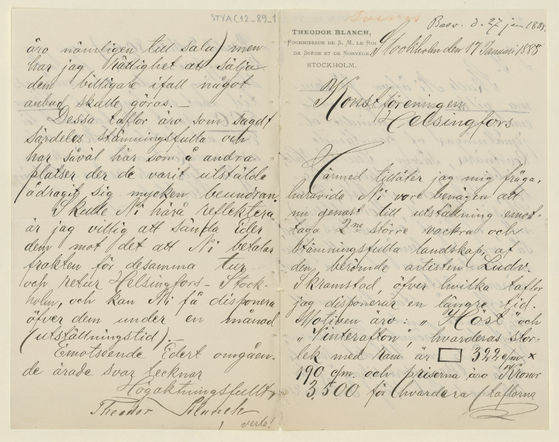 STYA(12_89_1
Besv. d. 27 jan. 1885.
THEODOR BLANCH,
FOURNISSEUR DE S. M. LE ROI
DE SUÈDE ET DE NORVÈGE.
STOCKHOLM.
Stockholm den 17 Januari 1885
Konstföreningen
Helsingfors
Härmed tillåter jag mig fråga,
huruvida Ni vore benägen att
nu genast till utställning emot-
taga 2ne större vackra och
stämningsfulla landskap af
den berömde artisten Ludv.
Skramstad, öfver hvilka taflor
jag disponerar en längre tid.
Motiven äro: "Höst" och
"Vinterafton" hvarderas stor-
lek med ram är 322 c/m. x
190 c/m. och priserna äro Kronor
3,500 för hvardera (taflorna
äro nämligen till salu) men
har jag rättighet att sälja
dem billigare ifall något
anbud skulle göras. –
Dessa taflor äro som sagdt
särdeles stämningsfulla och
har såväl här som å andra
platser der de varit utstälde
ådragit sig mycken beundran.
Skulle Ni härå reflektera
är jag villig att sända Eder
dem mot det att Ni betalar
frakten för desamma tur
och retur Helsingfors – Stock-
holm, och kan Ni få disponera
öfver dem under en månad
(utställningstid).
Emotseende Edert omgåen-
de ärade svar tecknar
Högaktningsfullt
Theodor Blanch
verte!